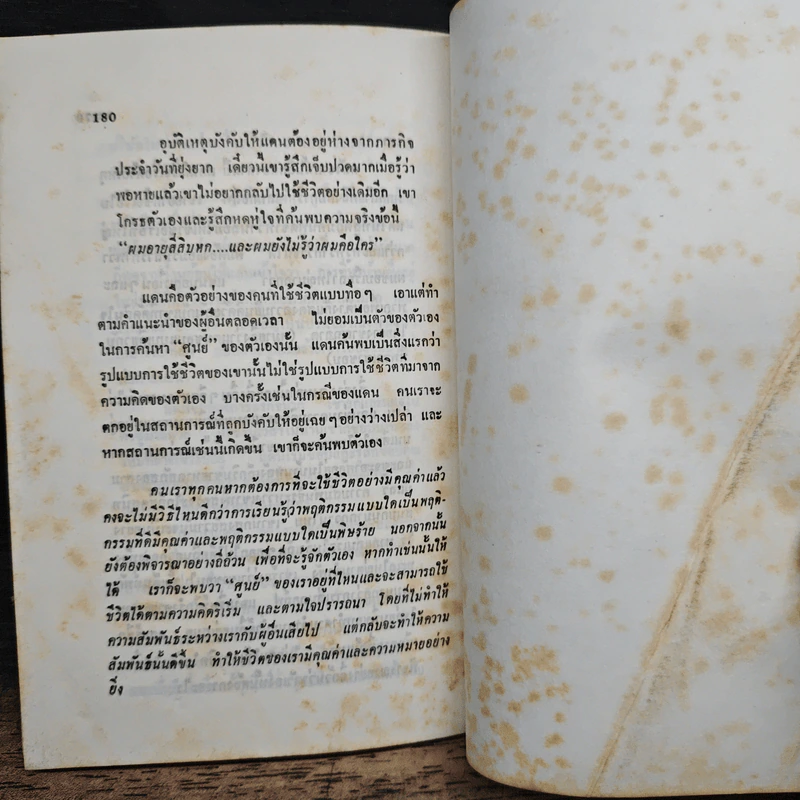 180
อุบัติเหตุบังคับให้แดนต้องอยู่ห่างจากภารกิจ
ประจำวันที่ยุ่งยาก เดี๋ยวนี้เขารู้สึกเจ็บปวดมากเมื่อรู้ว่า
พอหายแล้วเขาไม่อยากกลับไปใช้ชีวิตอย่างเดิมอีก เขา
โกรธตัวเองและรู้สึกหดหู่ใจที่ค้นพบความจริงข้อนี้
“ผมอายุสี่สิบหก....และผมยังไม่รู้ว่าผมคือใคร”
แดนคือตัวอย่างของคนที่ใช้ชีวิตแบบทื่อๆ เอาแต่ทำ
ตามคำแนะนำของผู้อื่นตลอดเวลา ไม่ยอมเป็นตัวของตัวเอง
ในการค้นหา “ศูนย์” ของตัวเองนั้น แดนค้นพบเป็นสิ่งแรกว่า
รูปแบบการใช้ชีวิตของเขานั้นไม่ใช่รูปแบบการใช้ชีวิตที่มาจาก
ความคิดของตัวเอง บางครั้งเช่นในกรณีของแดน คนเราจะ
ตกอยู่ในสถานการณ์ที่ถูกบังคับให้อยู่เฉยๆอย่างว่างเปล่า และ
หากสถานการณ์เช่นนี้เกิดขึ้น เขาก็จะค้นพบตัวเอง
คนเราทุกคนหากต้องการที่จะใช้ชีวิตอย่างมีคุณค่าแล้ว
คงจะไม่มีวิธีไหนดีกว่าการเรียนรู้ว่าพฤติกรรมแบบใดเป็นพฤติ-
กรรมที่ดีมีคุณค่าและพฤติกรรมแบบใดเป็นพิษร้าย นอกจากนั้น
ยังต้องพิจารณาอย่างถี่ถ้วน เพื่อที่จะรู้จักตัวเอง หากทำเช่นนั้นให้
ได้ เราก็จะพบว่า “ศูนย์” ของเราอยู่ที่ไหนและจะสามารถใช้
ชีวิตได้ตามความคิดริเริ่ม และตามใจปรารถนา โดยที่ไม่ทำให้
ความสัมพันธ์ระหว่างเรากับผู้อื่นเสียไป แต่กลับจะทำให้ความ
สัมพันธ์นั้นดีขึ้น ทำให้ชีวิตของเรามีคุณค่าและความหมายอย่าง
ยิ่ง